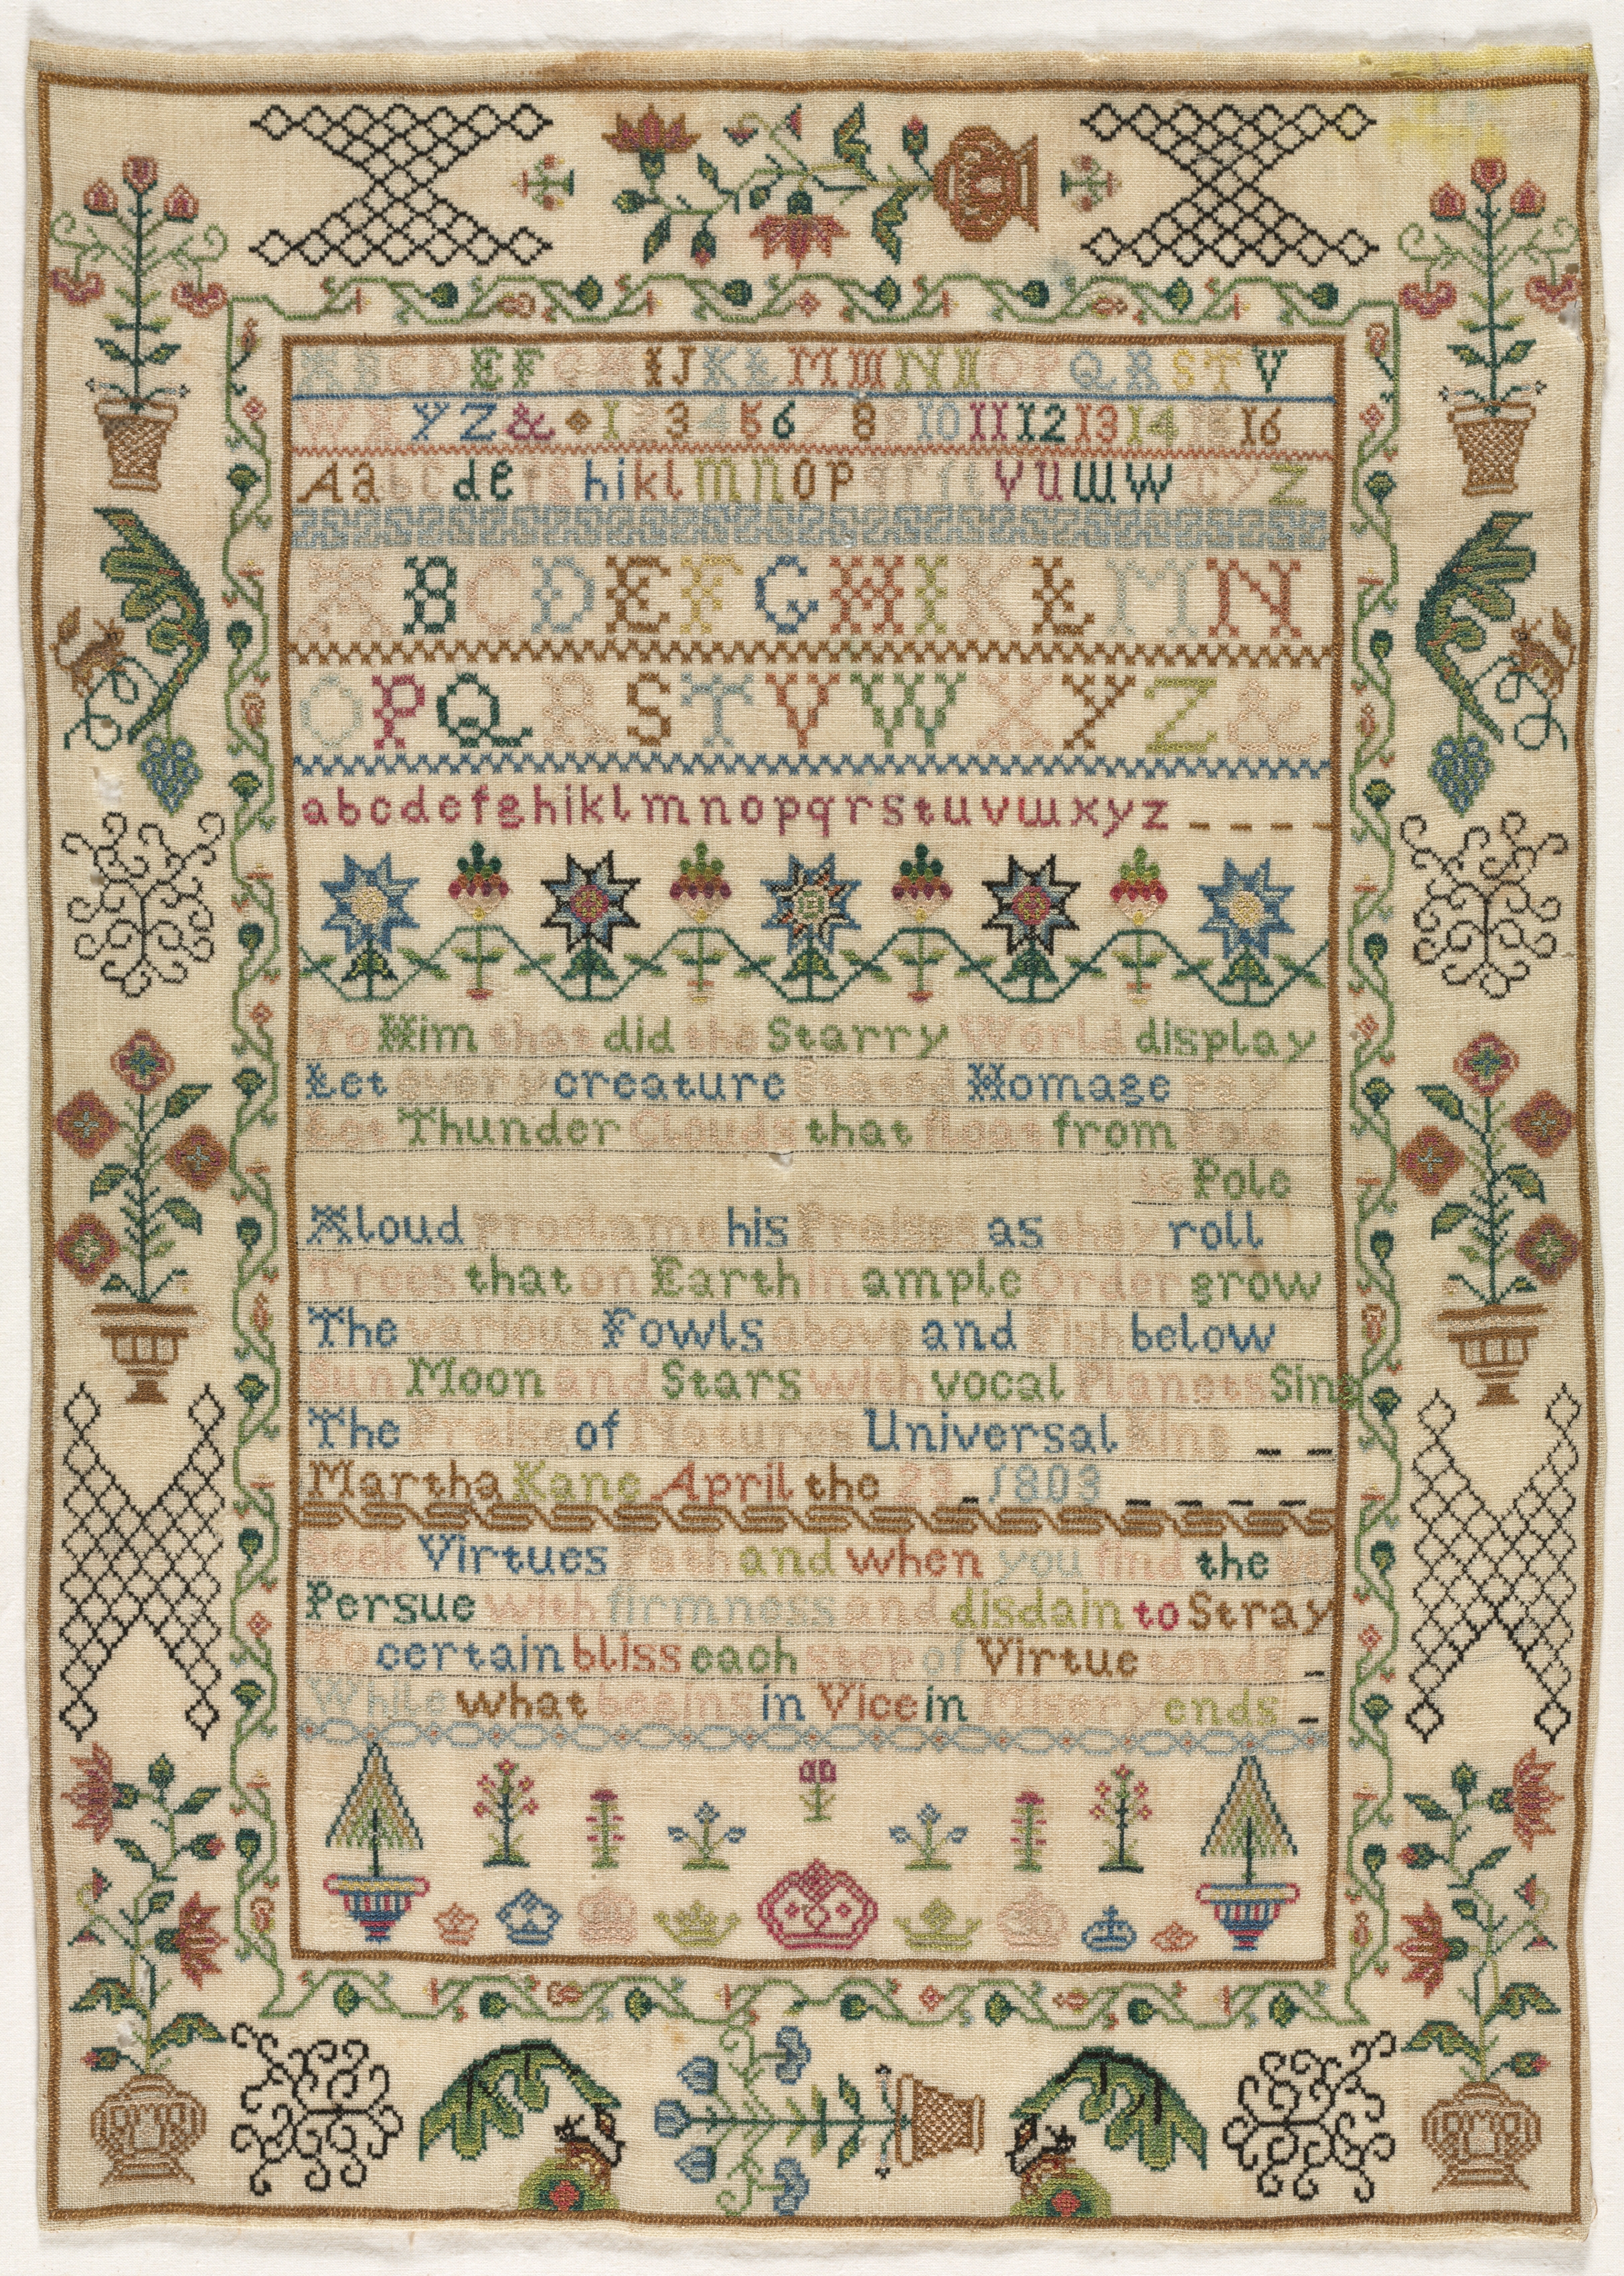 A B C D E F G H I J K L M M N N O P Q R S T V
W X Y Z & 1 2 3 4 5 6 7 8 9 10 11 12 13 14 15 16
A a b c d e f g h i k l m n o p q r ſ t v u w w x y z
A B C D E F G H I K L M N
O P Q R S T V W X Y Z &
a b c d e f g h i k l m n o p q r s t u v w x y z
To Him that did the Starry World display
Let every creature Placed Homage pay
Let Thunder Clouds that float from Pole
to Pole
Aloud proclame his Praises as they roll
Trees that on Earth in ample Order grow
The various Fowls above and Fish below
Sun Moon and Stars with vocal Planets Sing
The Praise of Natures Universal King
Martha Kane April the 23 1803
Seek Virtues Path and when you find the
Persue with firmness and disdain to Stray
To certain bliss each step of Virtue tends
While what begins in Vice in Misery ends